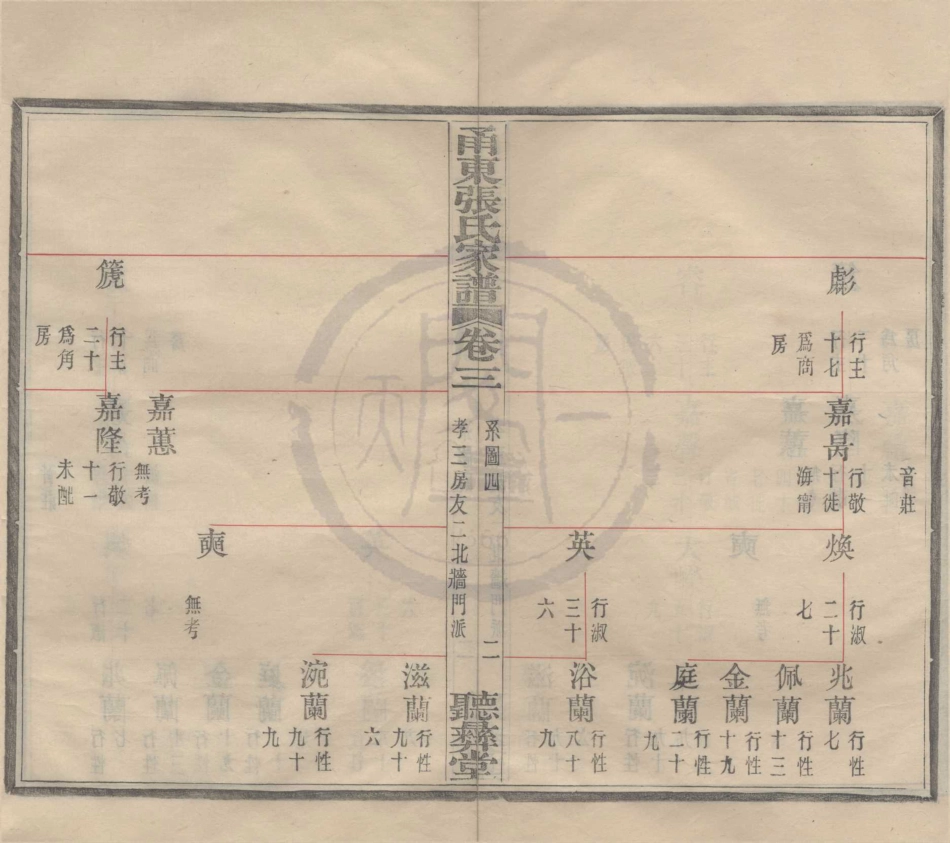 彪
行主
十七
爲商
房
音莊
嘉昺
行敬
十徙
海甯
煥
行淑
二十
七
英
行淑
三十
六
兆蘭
行性
七
佩蘭
行性
十三
金蘭
行性
十九
庭蘭
行性
二十
九
浴蘭
行性
八十
九
甬東張氏家譜
卷三
系圖四
孝三房友二北牆門派
二
聽彝堂
奭
無考
滋蘭
行性
九十
六
涴蘭
行性
九十
九
箎
行主
二十
爲角
房
嘉蕙
無考
嘉隆
行敬
十一
未配